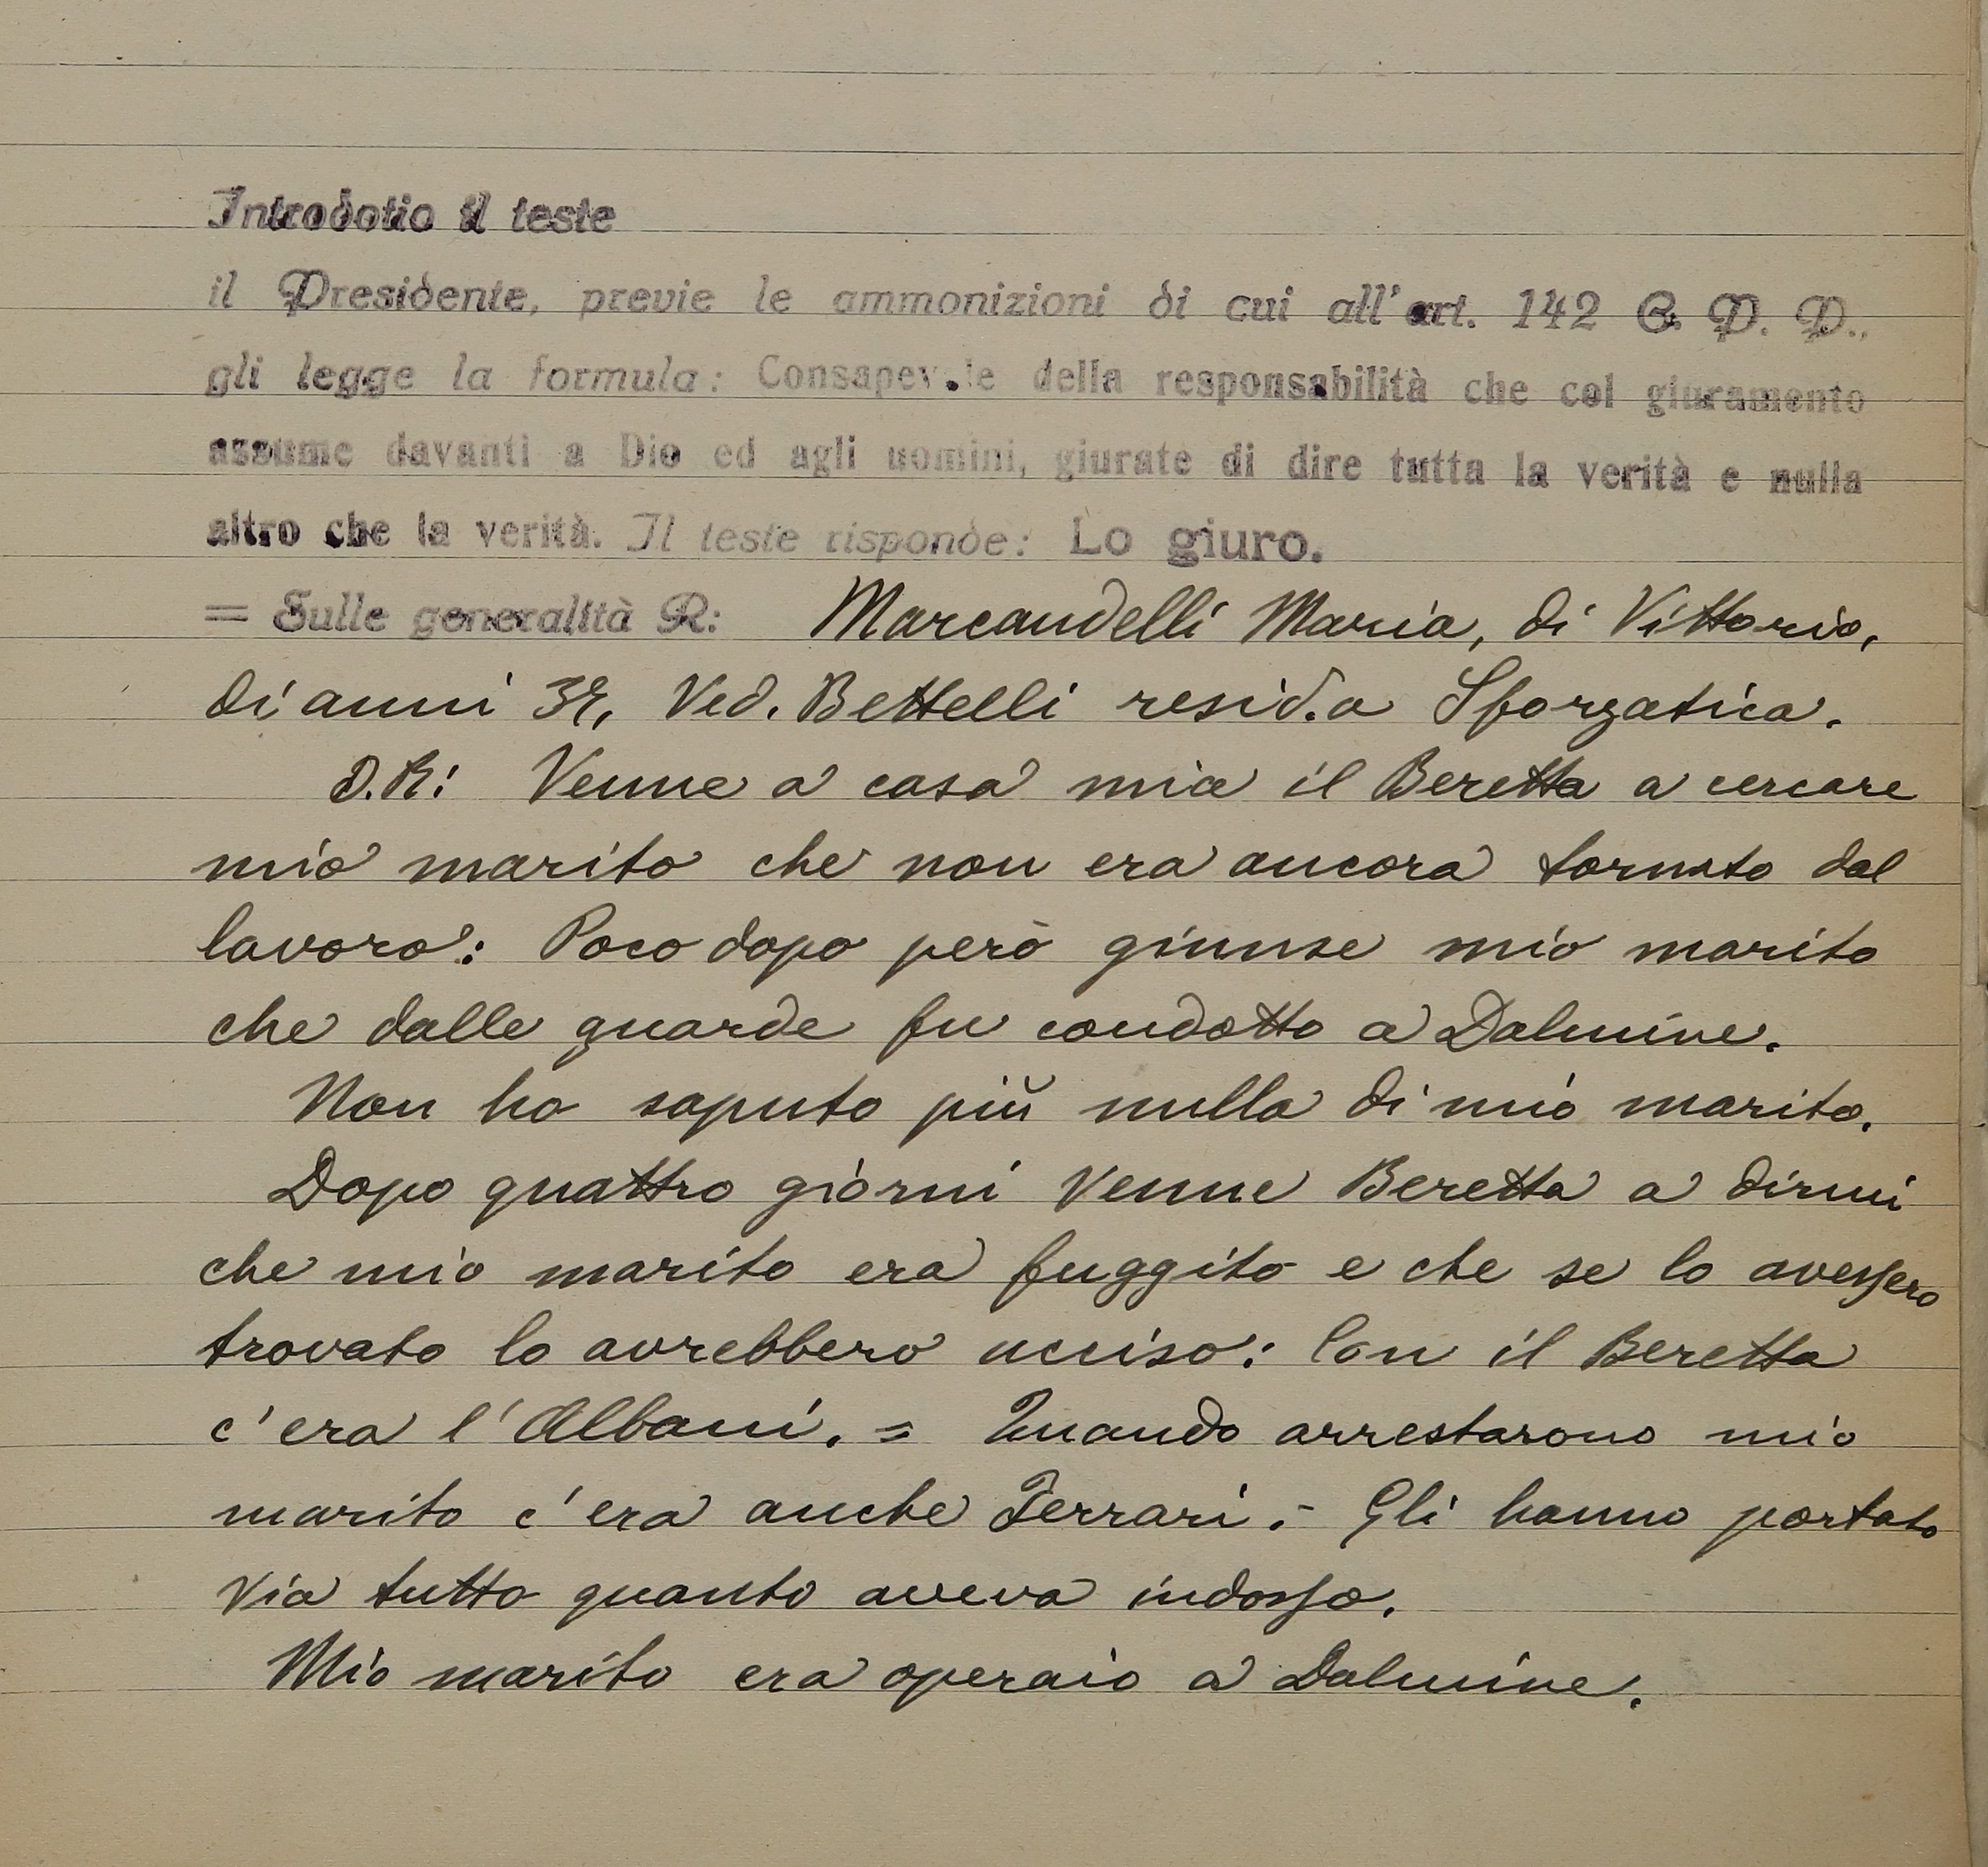 Introdotto il teste
il Presidente, previe le ammonizioni di cui all'art. 142 C. P. P.,
gli legge la formula: Consapevole della responsabilità che col giuramento
assume davanti a Dio ed agli uomini, giurate di dire tutta la verità e nulla
altro che la verità. Il teste risponde: Lo giuro.
= Sulle generalità R: Marcandelli Maria, di Vittorio,
di anni Ved. Bettelli resid. a Sforzatica.
D.R: Venne a casa mia il Beretta a cercare
mio marito che non era ancora tornato dal
lavoro: Poco dopo però giunse mio marito
che dalle guarde fu condotto a Dalmine.
Non ho saputo più nulla di mio marito.
Dopo quattro giorni venne Beretta a dirmi
che mio marito era fuggito e che se lo avessero
trovato lo avrebbero ucciso: Con il Beretta
c'era l'Albani. = Quando arrestarono mio
marito c'era anche Ferrari. - Gli hanno portato
via tutto quanto aveva indosso.
Mio marito era operaio a Dalmine.